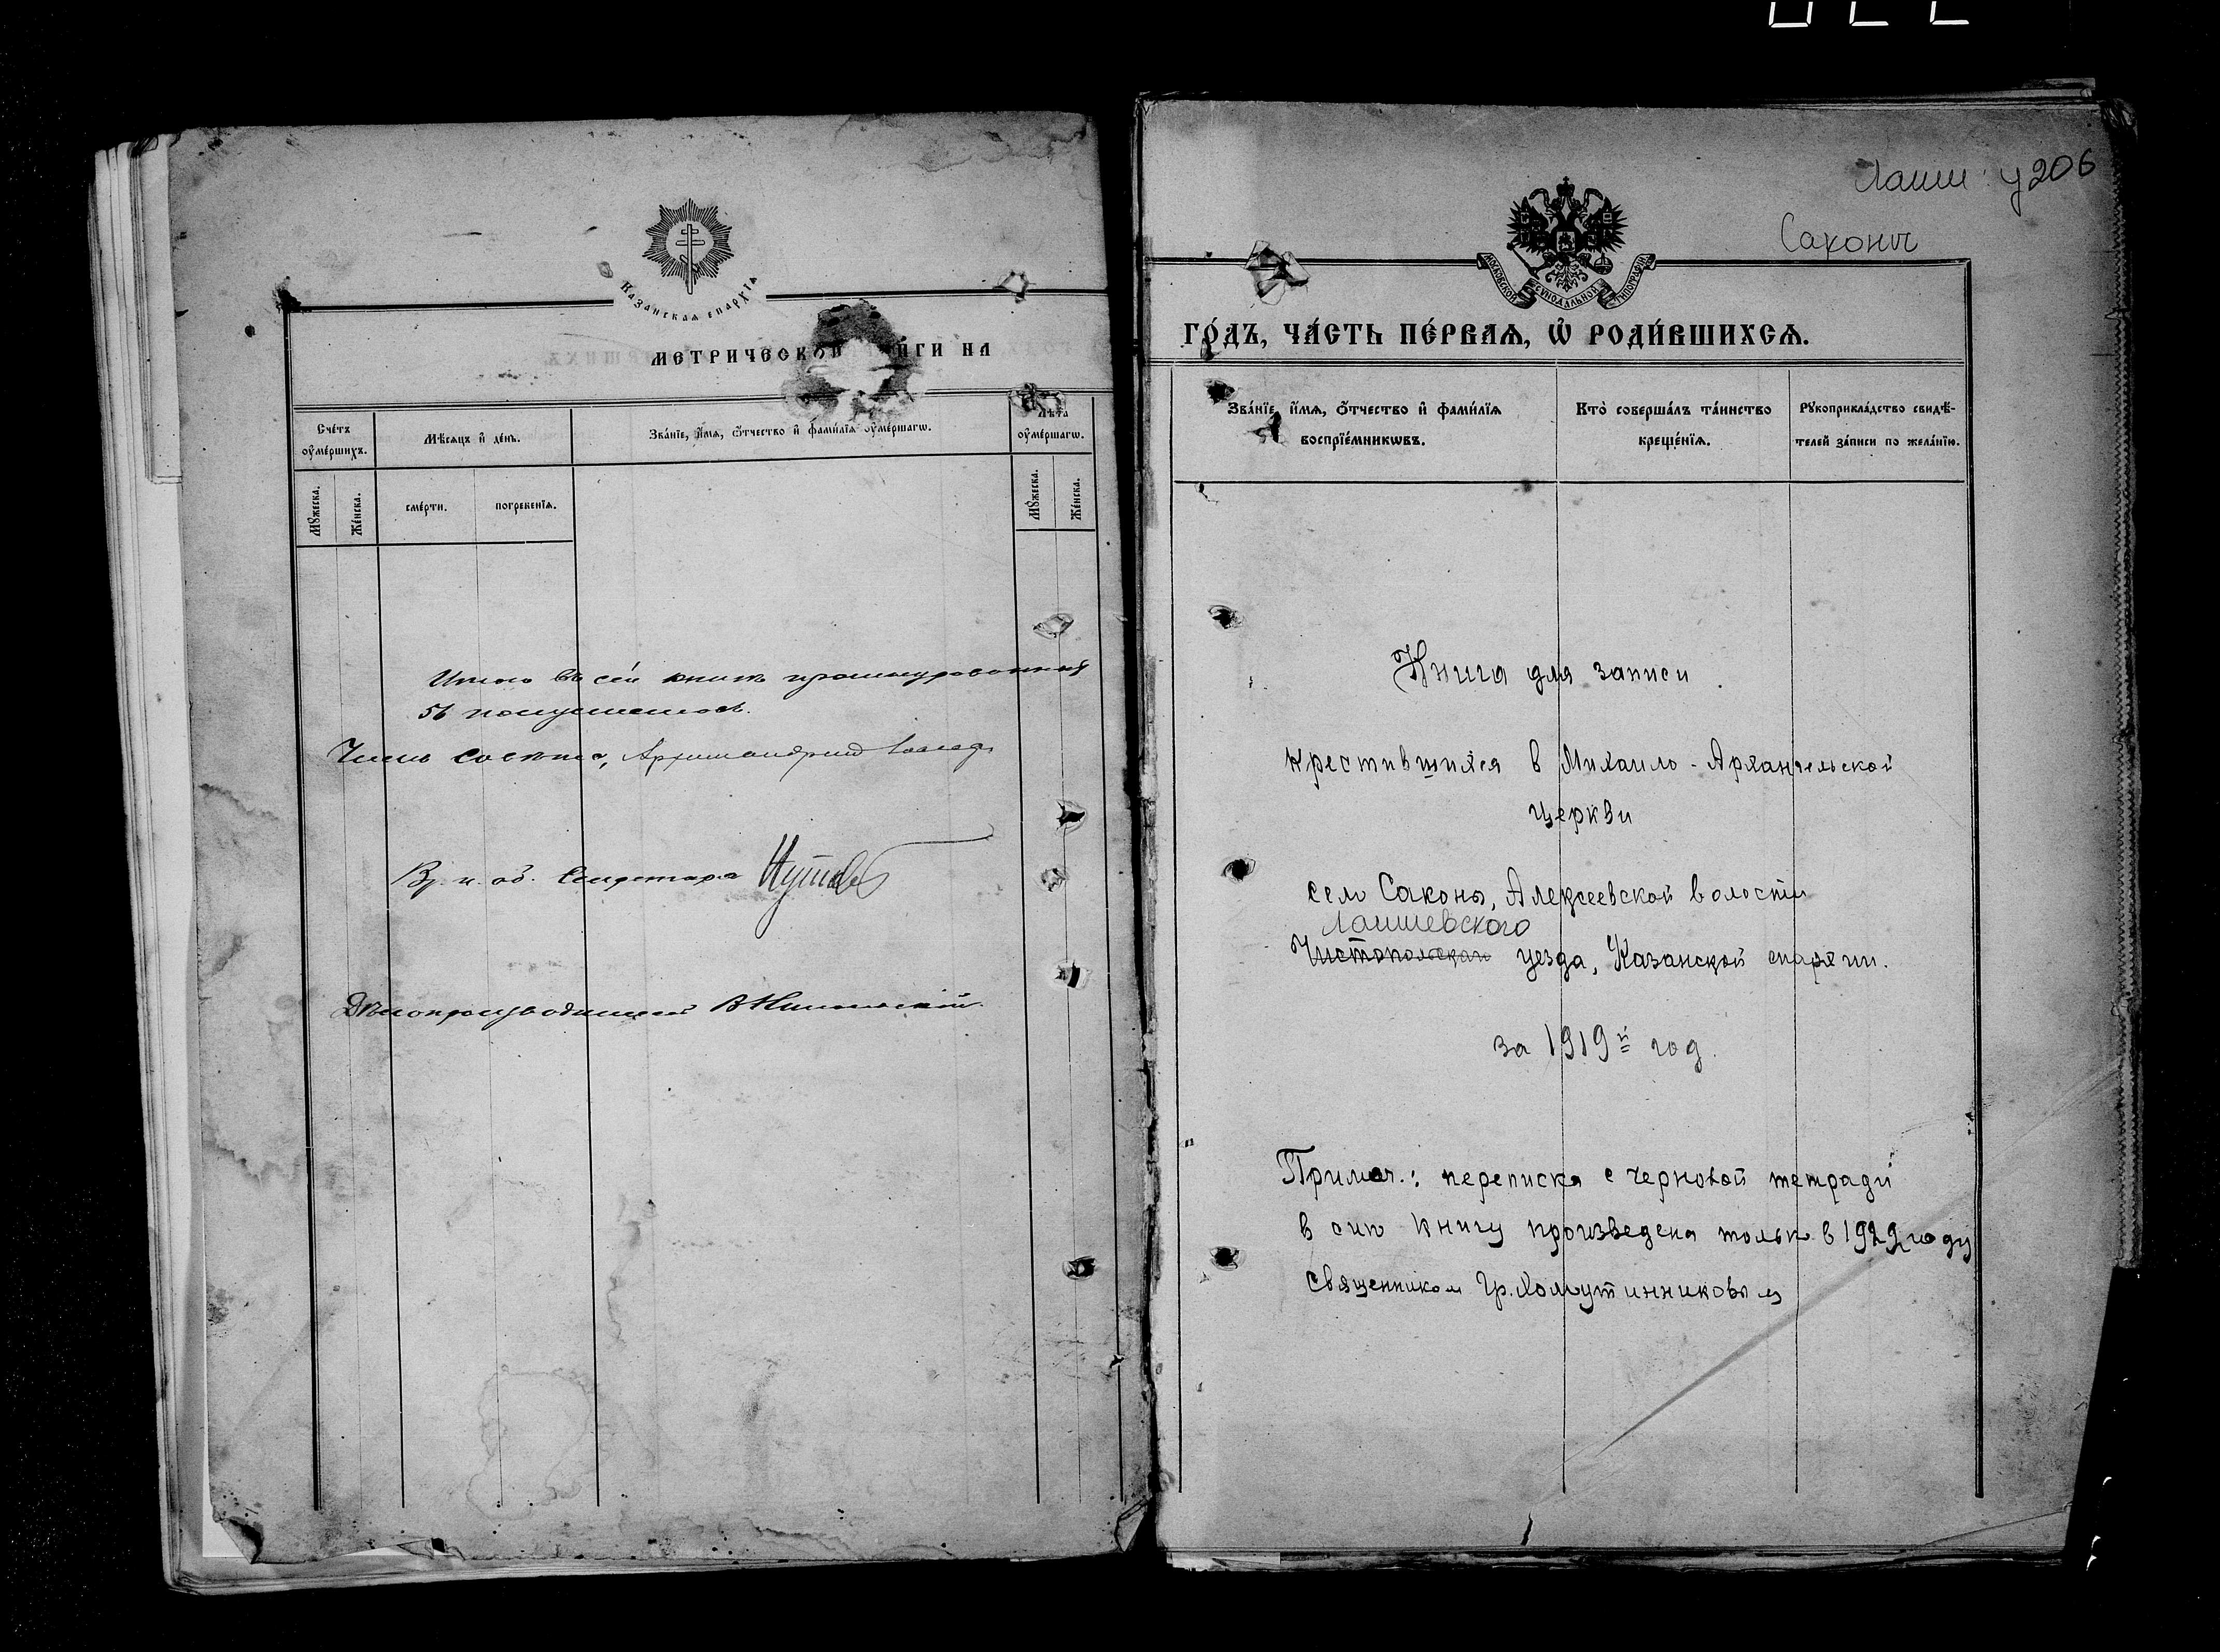 Казанская епархїя
МЕТРИЧЕСКОЙ ЙГИ НА
Сче́тъ ᲂу҆ме́ршихъ.
Мѣ́сяцъ и҆ де́нь.
Зва́нїе, и҆́мѧ, ѻ҆́тчество и҆ фами́лїѧ ᲂу҆ме́ршагѡ.
Лѣ́та ᲂу҆ме́ршагѡ.
Мꙋ́жеска.
Же́нска.
сме́рти.
погребенїѧ.
Мꙋ́жеска.
Же́нска.
Итого въ сей книгѣ прошнурованныхъ
56 полулистов.
Членъ Совѣта, Архимандрит
Вр. и. об. Секретаря
Дѣлопроизводитель В Никольскій
Лаиш. у 206
Саконы
МОСКОВСКОЙ СѴНОДАЛЬНОЙ ТИПОГРАФІИ
ГО́ДЪ, ЧА́СТЬ ПЕ́РВАѦ, Ѡ҆ РОДИ́ВШИХСѦ.
Зва́нїе, и҆́мѧ, ѻ҆́тчество и҆ фами́лїѧ
воспрїе́мникѡвъ.
Кто̀ соверша́лъ та́инство
креще́нїѧ.
Рꙋкоприкла́дство свидѣ́-
телей за́писи по жела́нїю.
Книга для записи
крестившихся в Михаило-Архангельской
церкви
села Саконы, Алексеевской волости
Лаишевского
Чистопольскаго уезда, Казанской епархии.
за 1919й год.
Примеч.: переписка с черновой тетради
в сию книгу произведена только в 1922 году
Священником Гр. Хомутинниковым